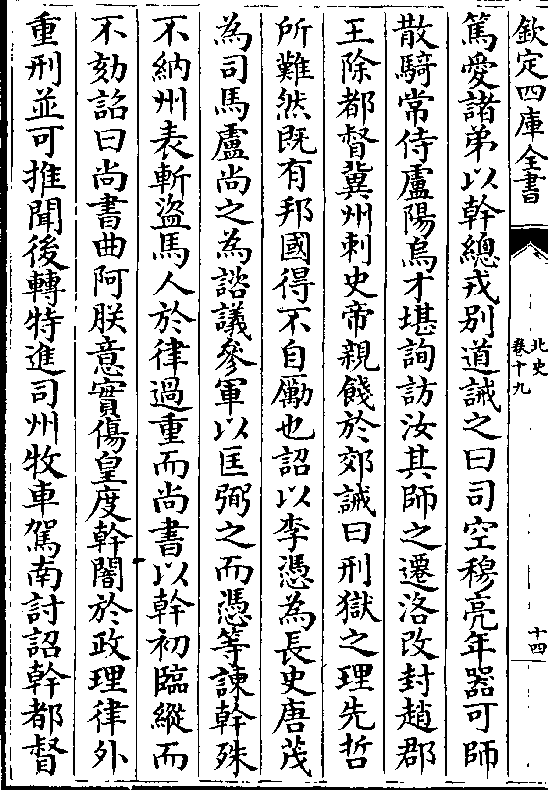 欽定四庫全書
北史
卷十九
十四
篤愛諸弟以幹總戎别道誡之曰司空穆亮年器可師
散騎常侍盧陽烏才堪詢訪汝其師之遷洛改封趙郡
王除都督冀州刺史帝親餞於郊誡曰刑獄之理先哲
所難然既有邦國得不自勵也詔以李憑為長史唐茂
為司馬盧尚之為諮議參軍以匡弼之而憑等諫幹殊
不納州表斬盜馬人於律過重而尚書以幹初臨縱而
不劾詔曰尚書曲阿朕意實傷皇度幹闇於政理律外
重刑並可推聞後轉特進司州牧車駕南討詔幹都督